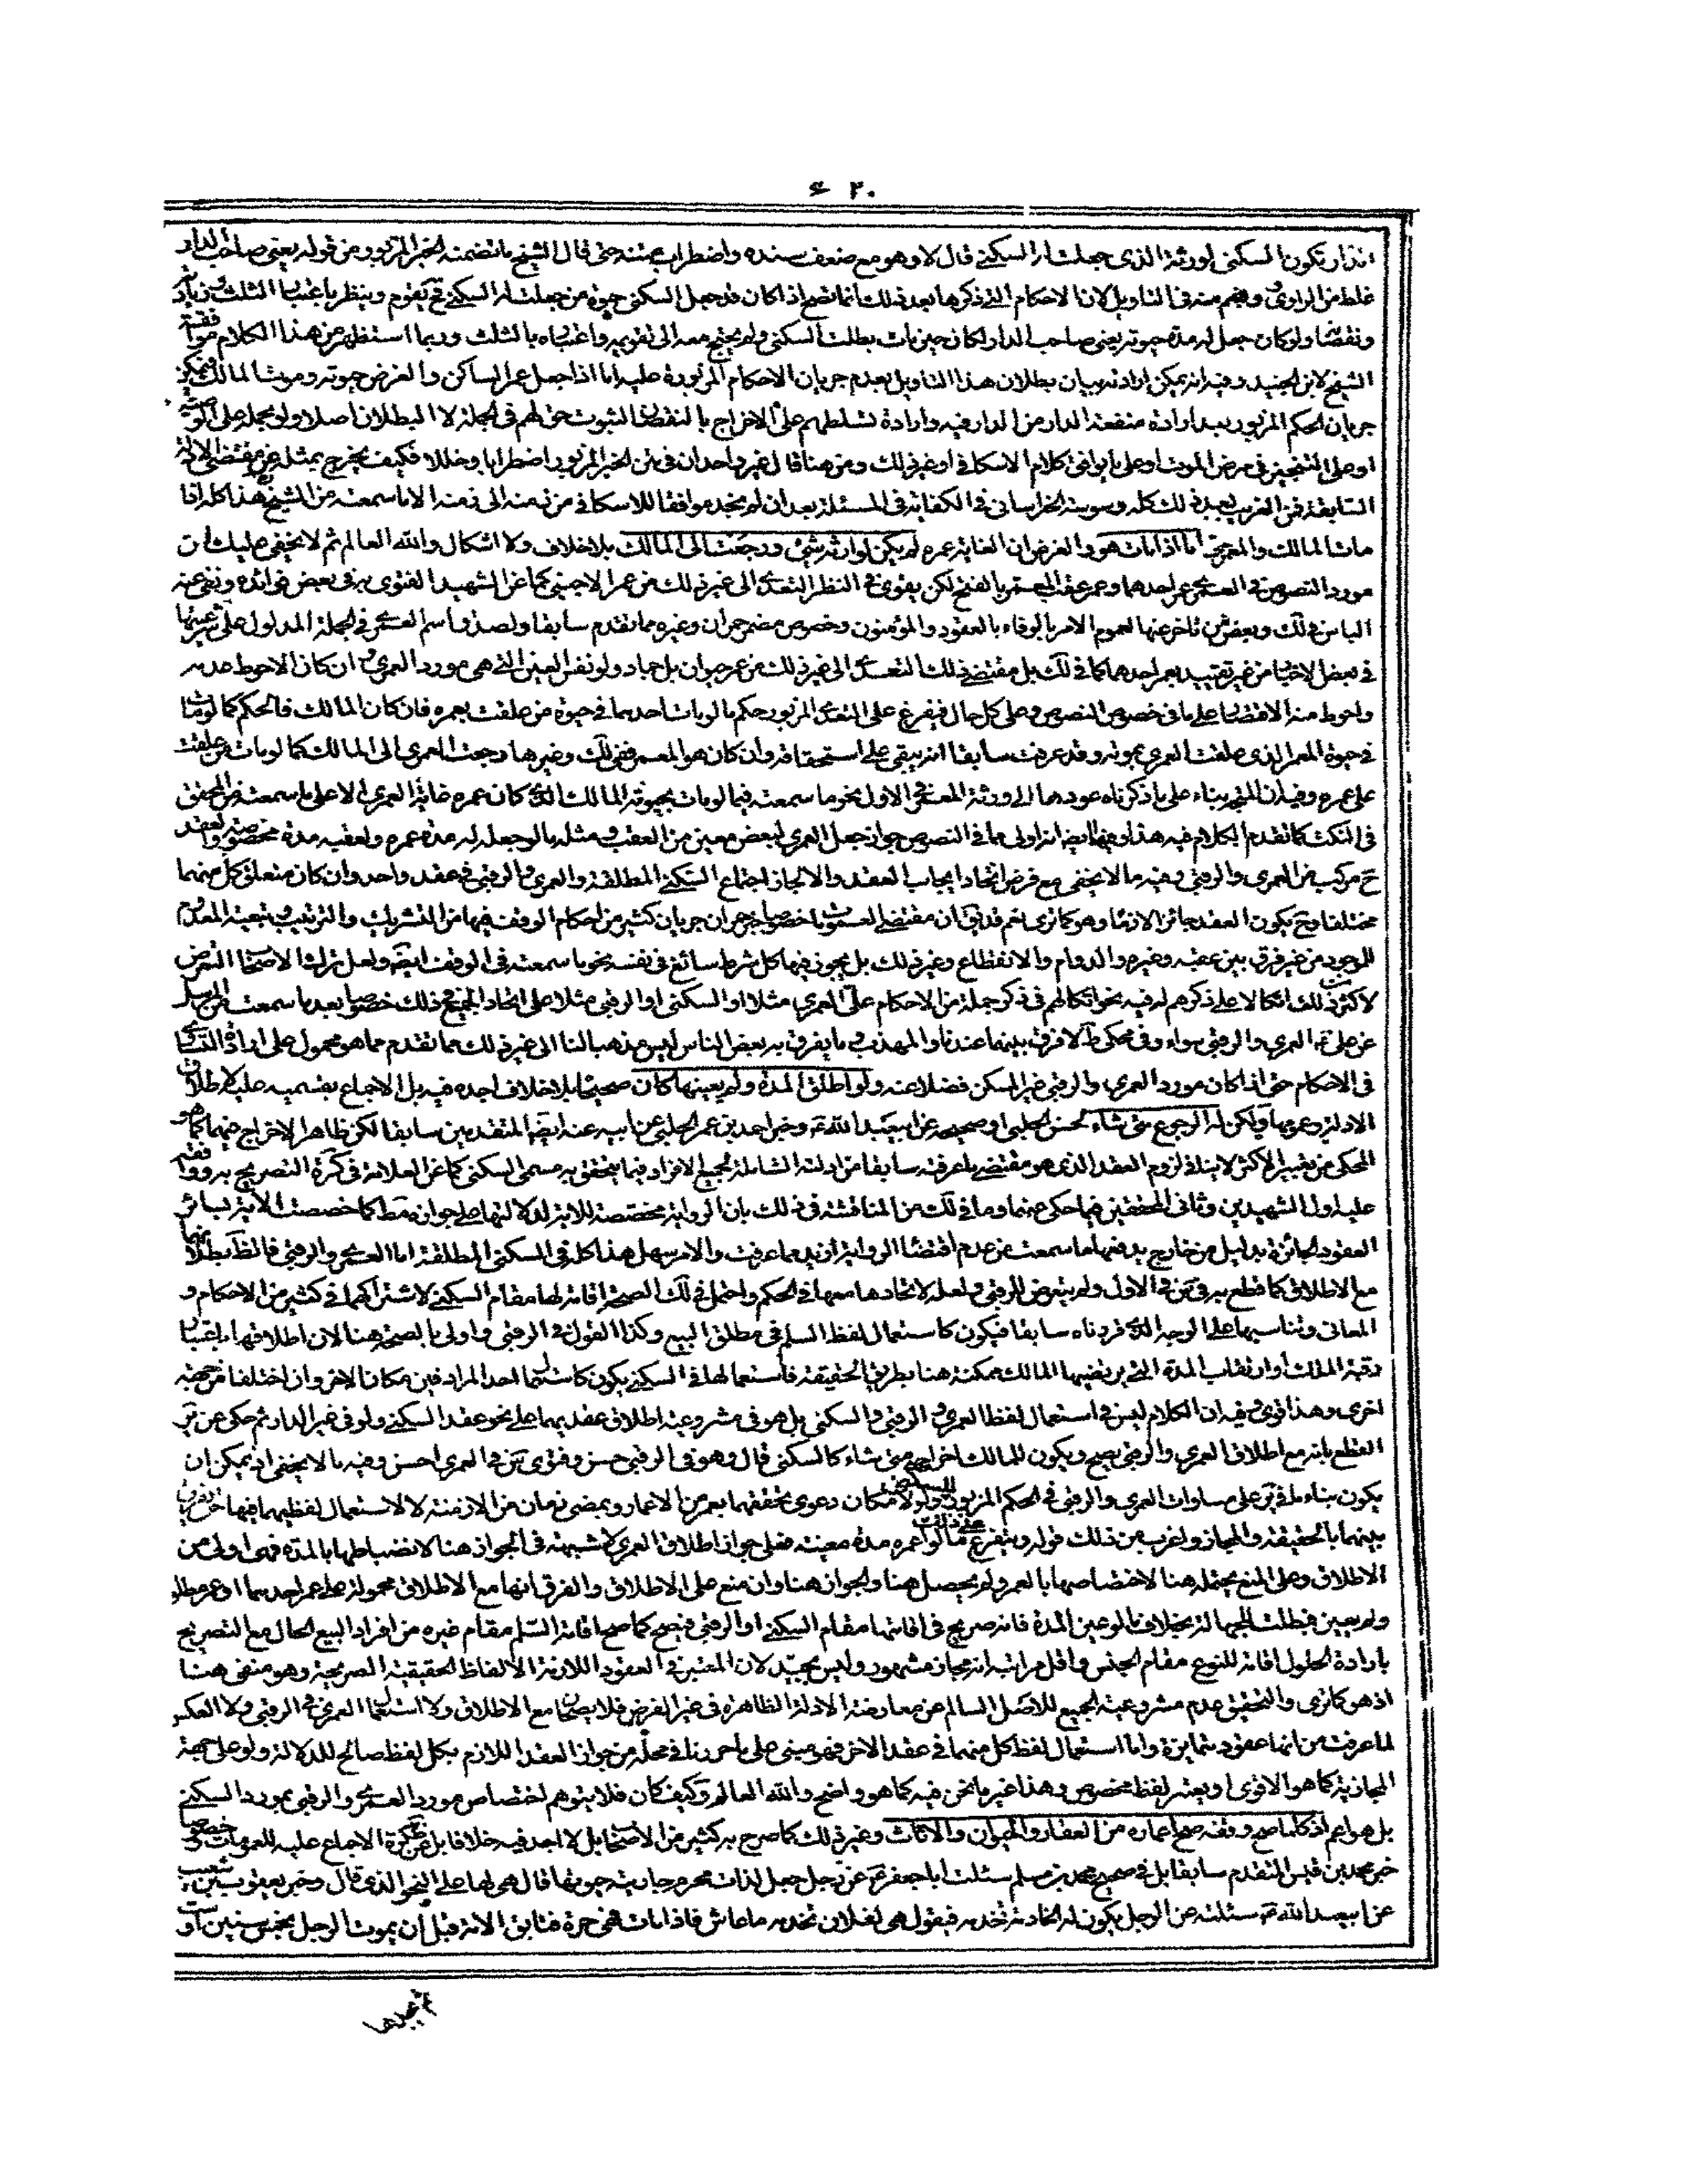 ٤ ٢٠
تكون السكنى لورثة الذى جعلت له السكنى قال لا وهو مع ضعف سنده واضطراب متنه حتى قال الشيخ ما تضمنه الخبر المزبور من قوله يعنى صاحب الدار
غلط من الراوى ووهم منه فى التاويل لان الاحكام التى ذكرها بعد ذلك انما تصح اذا كان قد جعل السكنى حيوة من جعلت له السكنى فح تقوم وينظر باعتبار الثلث وزيادته
ونقصانه ولو كان جعل له مدة حيوته يعنى صاحب الدار لكان حين مات بطلت السكنى ولم يحتج معه الى تقويمه واعتباره بالثلث وربما استظهر من هذا الكلام موافقة
الشيخ لابن الجنيد وفيه انه يمكن ارادته بيان بطلان هذا التاويل بعدم جريان الاحكام المزبورة عليه اما اذا جعل عمر الساكن والغرض حيوته وموت المالك فيمكن
جريان الحكم المزبور بعد ارادة منفعة الدار من الدار فيه وارادة تسلطهم على الاخراج بالنقصان لثبوت حق لهم فى الجملة لا البطلان اصلا ولو بحمله على الوصية
او على التنجيز فى مرض الموت او على ما يوافق كلام الاسكافى او غير ذلك ومن هنا قال غير واحد ان فى متن الخبر المزبور اضطرابا وخللا فكيف يخرج بمثله عن مقتضى الادلة
السابقة فمن الغريب بعد ذلك كله وسوسة الخراسانى فى الكفاية فى المسئلة بعد ان لم نجد موافقا للاسكافى من زمنه الى زمنه الا ما سمعته من الشيخ هذا كله اذا
مات المالك والمعمر حى اما اذا مات هو والغرض ان الغاية عمره لم يكن لوارثه شىء ورجعت الى المالك بلا خلاف ولا اشكال والله العالم ثم لا يخفى عليك ان
مورد النصوص فى العمرى عمر احدهما وعمر عقب المعمر بالفتح لكن يقوى فى النظر التعدى الى غير ذلك من عمر الاجنبى كما عن الشهيد الفتوى به فى بعض فوائده ونفى عنه
الباس فى لك وبعض من تاخر عنها لعموم الامر بالوفاء بالعقود والمؤمنون وخصوص مضمر حمران وغيره مما تقدم سابقا ولصدق اسم العمرى فى الجملة المدلول على شرعيتها
فى بعض الاخبار من غير تقييد بعمر احدهما كما فى لك بل مقتضى ذلك التعدى الى غير ذلك من عمر حيوان بل جماد ولو نفس العين التى هى مورد العمرى وان كان الاحوط عدمه
واحوط منه الاقتصار على ما فى خصوص النصوص وعلى كل حال فيفرع على التعدى المزبور حكم ما لو مات احدهما فى حيوة من علقت بعمره فان كان المالك فالحكم كما لو مات
فى حيوة المعمر الذى علقت العمرى بموته وقد عرفت سابقا انه يبقى على استحقاقه وان كان هو المعمر ففى لك وغيرها رجعت العمرى الى المالك كما لو مات من علقت
على عمره وفيه ان المتجه بناء على ما ذكرناه عودها الى ورثة المعمر فى الاول نحو ما سمعته فيما لو مات بحيوة المالك الذى كان عمره غاية العمرى الا على ما سمعته من المحقق
فى النكت كما تقدم الكلام فيه هذا وفيها ايضا انه اولى مما فى النصوص جواز جعل العمرى لبعض معين من العقب ومثله ما لو جعله له مدة عمره ولعقبه مدة مخصوصة والعقد
ح مركب من العمرى والرقبى وفيه ما لا يخفى مع فرض اتحاد ايجاب العقد والا لجاز اجتماع السكنى المطلقة والعمرى والرقبى فى عقد واحد وان كان متعلق كل منهما
مختلفا وح يكون العقد جائزا لازما وهو كما ترى نعم قد يق ان مقتضى العمومات خصوصا خبر حمران جريان كثير من احكام الوقف فيها من التشريك والترتيب وتبعية المعدوم
للموجود من غير فرق بين عقبه وغيره والدوام والانقطاع وغير ذلك بل يجوز فيها كل شرط سائغ فى نفسه نحو ما سمعته فى الوقف ايضا ولعل ترك الاصحاب التعرض
لاكثر ذلك اتكالا على ذكرهم له فيه نحو اتكالهم فى ذكر جملة من الاحكام على العمرى مثلا او السكنى او الرقبى مثلا على اتحاد الجميع فى ذلك خصوصا بعد ما سمعت من المرسل
عن على ع العمرى والرقبى سواء وفى محكى ط لا فرق بينهما عندنا والمهذب وما يفرق به بعض الناس ليس مذهبا لنا الى غير ذلك مما تقدم مما هو محمول على ارادة التساوى
فى الاحكام حتى اذا كان مورد العمرى والرقبى غير المسكن فضلا عنه ولو اطلق المدة ولم يعينها كان صحيحا بلا خلاف اجده فيه بل الاجماع بقسميه عليه لاطلاق
الادلة وعمومها ولكن له الرجوع متى شاء لحسن الحلبى او صحيحه عن ابيعبد الله ع وخبر احمد بن عمر الحلبى عن ابيه عنه ايضا المتقدمين سابقا لكن ظاهر الاخراج منهما كما هو
المحكى من تعبير الاكثر لا ينافى لزوم العقد الذى هو مقتضى ما عرفته سابقا من ادلته الشاملة لجميع الافراد فيما يتحقق به مسمى السكنى كما عن العلامة فى كرة التصريح به ووافقه
عليه اول الشهيدين وثانى المحققين فيما حكى عنهما وما فى لك من المناقشة فى ذلك بان الرواية مختصة للاية لدلالتها على جوازه مط كما خصصت الاية لسائر
العقود الجائزة بدليل من خارج يدفعها ما سمعت من عدم اقتضاء الرواية ازيد مما عرفت والامر سهل هذا كله فى السكنى المطلقة اما العمرى والرقبى فالظ بطلانهما
مع الاطلاق كما قطع به فى س فى الاول ولم يتعرض للرقبى ولعله لاتحادها معها فى الحكم واحتمل فى لك الصحة اقامة لها مقام السكنى لاشتراكهما فى كثير من الاحكام و
المعانى وتناسبها على الوجه الذى قررناه سابقا فيكون كاستعمال لفظ السلم فى مطلق البيع وكذا القول فى الرقبى واولى بالصحة هنا لان اطلاقها باعتبار
رقبة الملك او ارتقاب المدة التى يرتضيها المالك ممكنة هنا بطريق الحقيقة فاستعمالها فى السكنى يكون كاستعمال احد المرادفين مكان الاخر وان اختلفا من جهة
اخرى وهذا قوى وفيه ان الكلام ليس فى استعمال لفظ العمرى والرقبى والسكنى بل هو فى مشروعية اطلاق عقد بهما على نحو عقد السكنى ولو فى غير الدار ثم حكى عن ير
القطع بانه مع اطلاق العمرى والرقبى يصح ويكون للمالك اخراجه متى شاء كالسكنى قال وهو فى الرقبى حسن وفتوى س فى العمرى احسن وفيه ما لا يخفى اذ يمكن ان
يكون بناء ما فى ير على مساوات العمرى والرقبى فى الحكم المزبور للسكنى ولو لامكان دعوى تحققهما بعمر من الاعمار وبمضى زمان من الازمنة لا لاستعمال لفظيهما فيها حتى يفرق
بينهما بالحقيقة والمجاز واغرب من ذلك قوله ويتفرع على ذلك ما لو اعمره مدة معينة فعلى جواز اطلاق العمرى لا شبهة فى الجواز هنا لانضباطها بالمدة فهى اولى من
الاطلاق وعلى المنع يحتمله هنا لاختصاصها بالعمر ولم يحصل هنا والجواز هنا وان منع على الاطلاق والفرق انها مع الاطلاق محمولة على عمر احدهما او عمر مطلق
ولم يعين فبطلت للجهالة بخلاف ما لو عين المدة فانه صريح فى اقامتها مقام السكنى او الرقبى فيصح كما صح اقامة السلم مقام غيره من افراد البيع الحال مع التصريح
بارادة الحلول اقامة للنوع مقام الجنس واقل مراتبه انه مجاز مشهور وليس بجيد لان المعتبر فى العقود اللازمة الالفاظ الحقيقية الصريحة وهو منفى هنا
اذ هو كما ترى والتحقيق عدم مشروعية الجميع للاصل السالم عن معارضة الادلة الظاهرة فى غير الفرض فلا يصحان مع الاطلاق ولا استعمال العمرى فى الرقبى ولا العكس
لما عرفت من انها عقود متمايزة واما استعمال لفظ كل منهما فى عقد الاخر فهو مبنى على ما حررنا فى محله من جواز العقد اللازم بكل لفظ صالح للدلالة ولو على جهة
المجازية كما هو الاقوى او يعتبر لفظ مخصوص وهذا غير ما نحن فيه كما هو واضح والله العالم وكيف كان فلا يتوهم اختصاص مورد العمرى والرقبى بمورد السكنى
بل هو اعم اذ كلما صح وقفه صح اعماره من العقار والحيوان والاثاث وغير ذلك كما صرح به كثير من الاصحاب بل لا اجد فيه خلافا بل عن كرة الاجماع عليه للعمومات وخصوصا
خبر محمد بن قيس المتقدم سابقا بل فى صحيح محمد بن مسلم سئلت ابا جعفر ع عن رجل جعل لذات محرم جاريته حيوتها قال هى لها على النحو الذى قال وخبر يعقوب بن شعيب
عن ابيعبد الله ع سئلته عن الرجل يكون له الخادمة تخدمه فيقول هى لفلان تخدمه ما عاش فاذا مات فهى حرة فتابق الامة قبل ان يموت الرجل بخمس سنين او ست